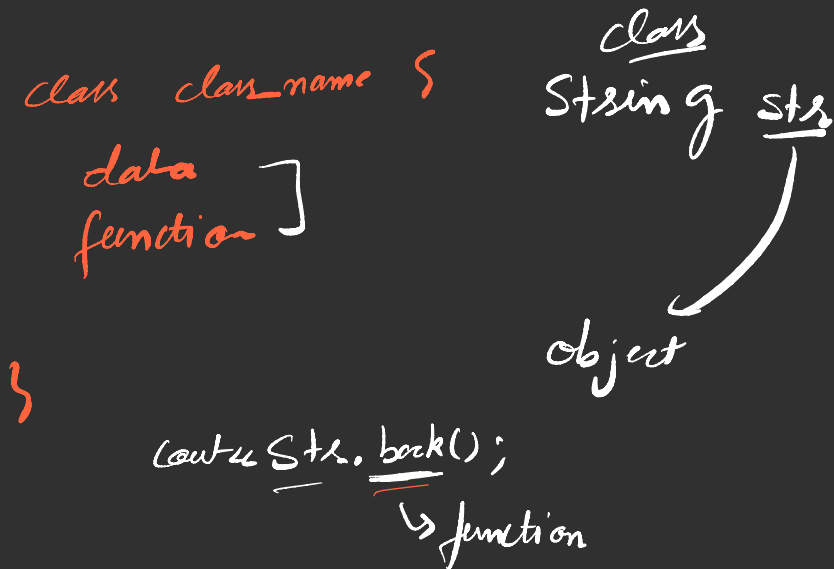 class class_name {
data
function
}
class
String str
object
cout << str.back();
function